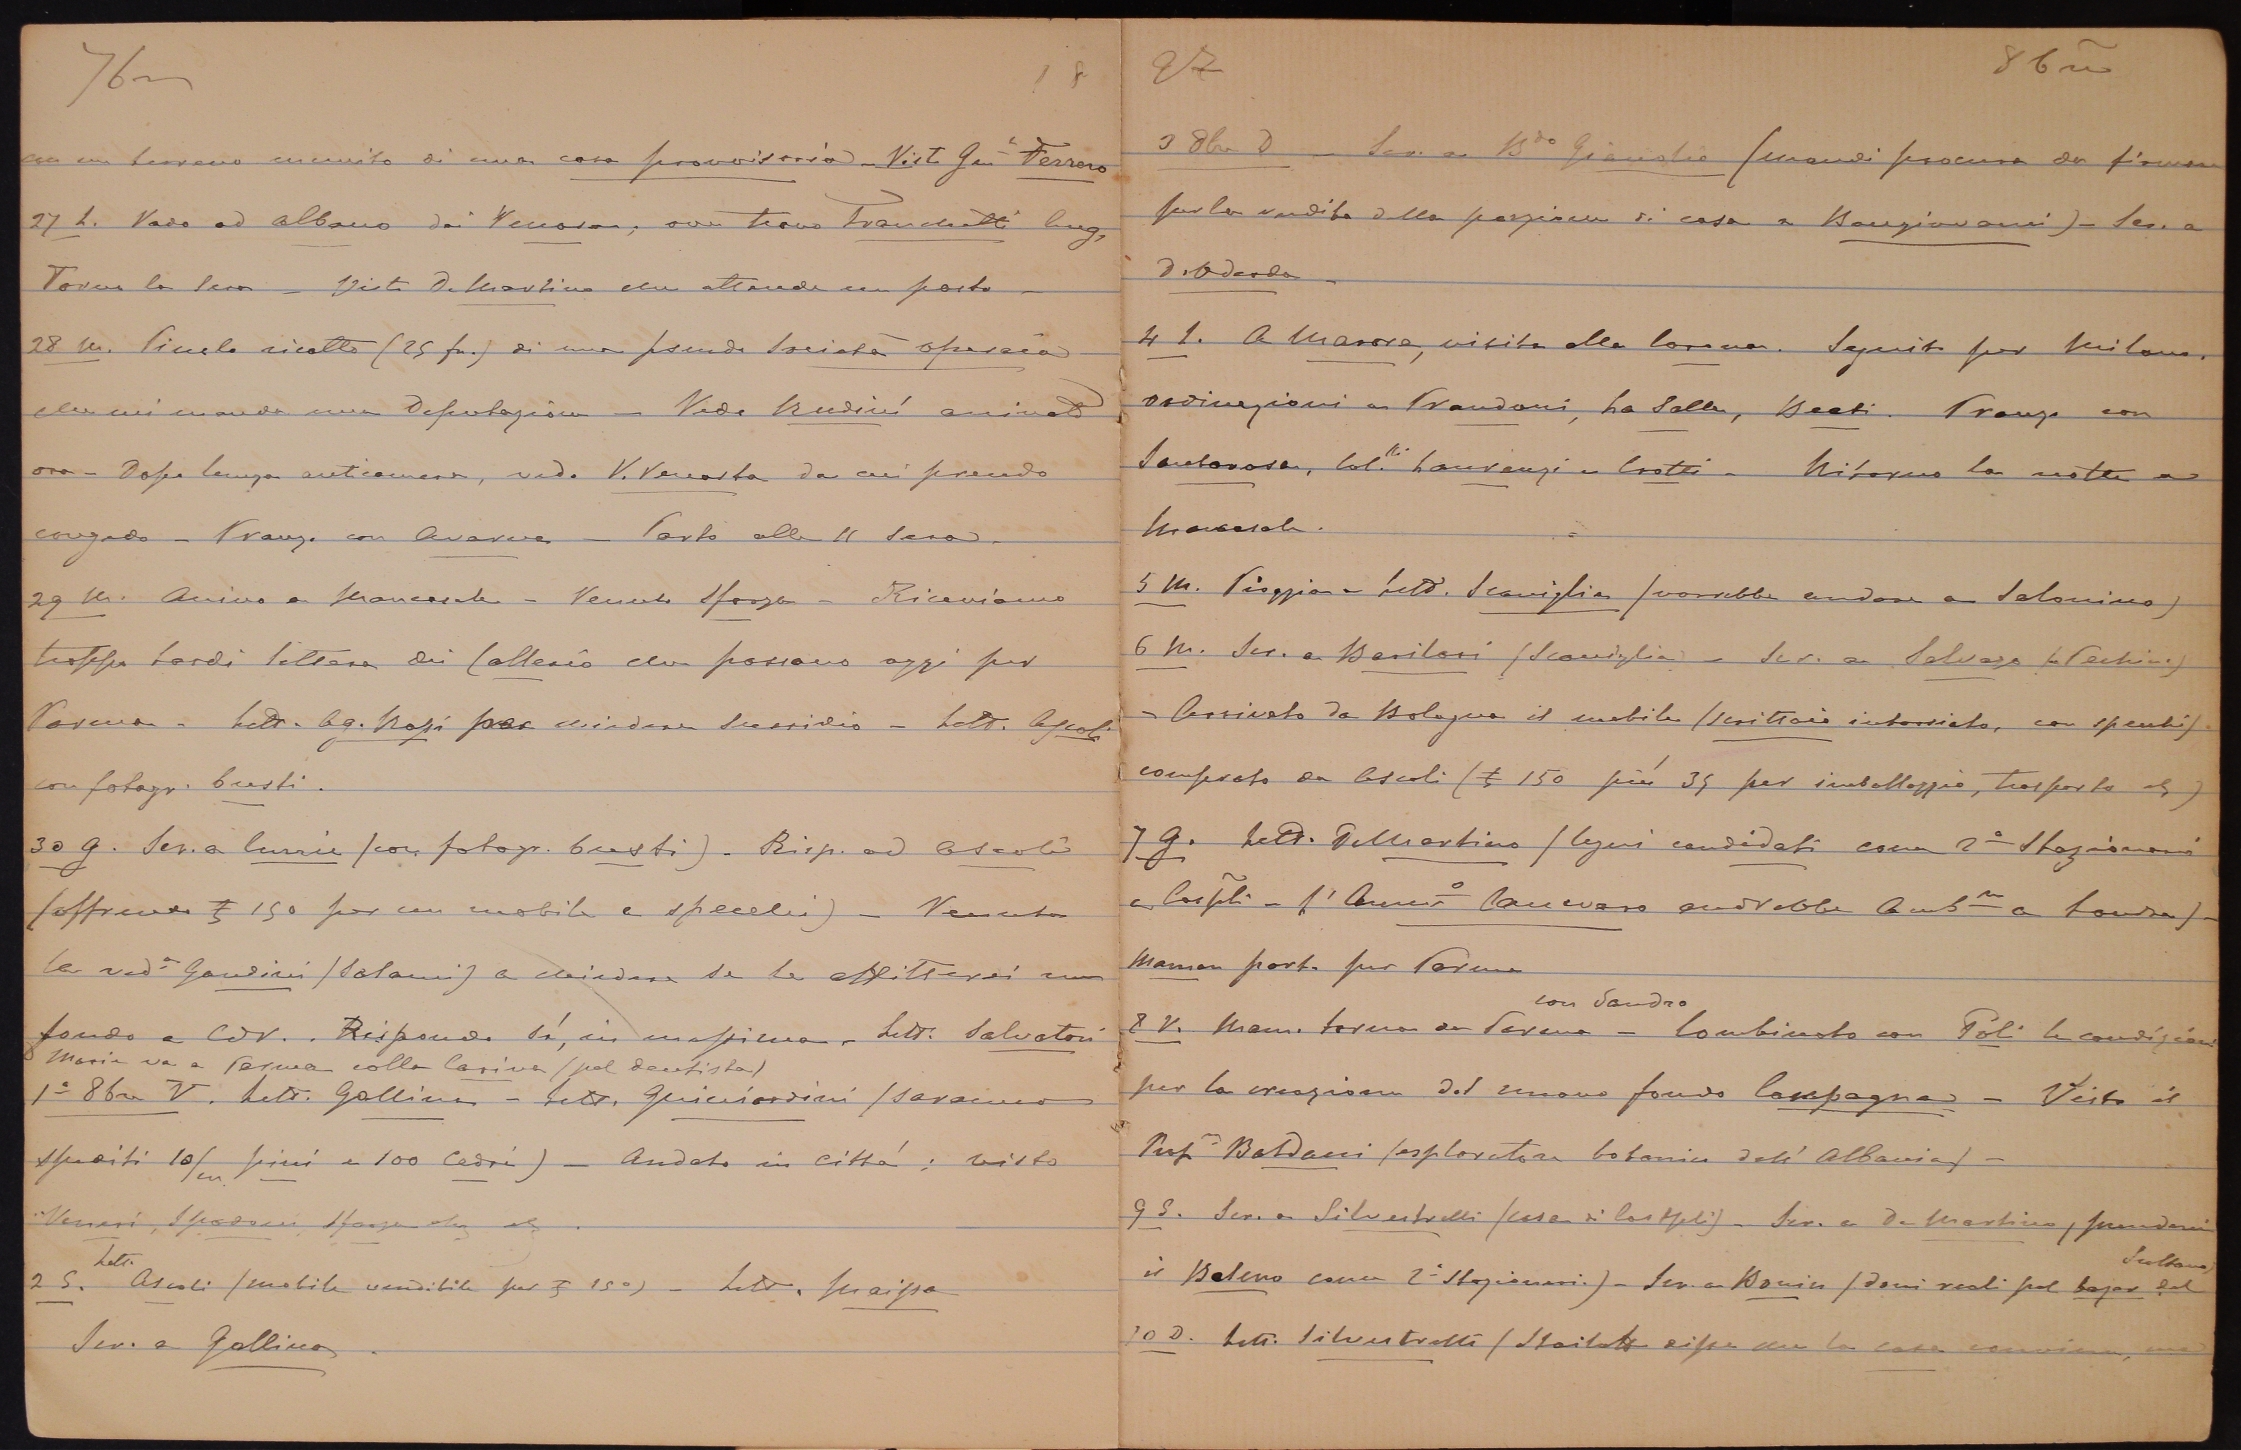 7bre 18
con un terreno munito di una casa provvisoria - Visto Gen.le Ferrero
27 L. Vado ad Albano dai Venosa, ove trovo Franchetti Eug.
Torno la sera - Visto De Martino che attende un posto -
28 M. Piccolo ricatto (25 fr.) di una pseudo Società operaia
che mi manda una Deputazione - Vedo Rudinì arrivato
ora - Dopo lunga anticamera, vedo V. Venosta da cui prendo
congedo - Pranzo con Avarna - Parto alle 11 sera -
29 M. Arrivo a Mancasale - Venuto Sforza - Riceviamo
troppo tardi lettera dei Calleri che passano oggi per
Parma - Lett. Ag. per chiedere sussidio - Lett. Ascoli
con fotogr. busti.
30 G. Scr. a Currie (con fotogr. busti) - Risp. ad Ascoli
(offrendo £ 150 per un mobile a specchi) - Venuta
la ved.a Gandini (Salami) a chiedere se le affitterei un
fondo a Cdr. . Rispondo sì, in massima - Lett. Salvatori
Maria va a Parma colla Carina (pel dentista)
1° 8bre V. Lett. Gallina - Lett. Guicciardini (saranno
spediti 10/m pini e 100 cedri) - Andato in città: visto
Venieri, Spadoni, Sforza etc etc.
2 S. Lett. Ascoli (mobile vendibile per £ 150) - Lett.
Scr. a Gallina.
97 8bre
3 8bre D - Scr. a B.do (mandi procura da firmare
per la vendita della porzione di casa a Bongiovanni) - Scr. a
D. Oderda -
4 L. A Masone, visita alla Corona. Seguito per Milano.
Ordinazioni a Prandoni, La Salle, Beati. Pranzo con
Santarosa, Col.lli Laurenzi e Crotti - Ritorno la notte a
Mancasale.
5 M. Pioggia - Lett. Scaniglia (vorrebbe andare a Salonicco)
6 M. Scr. a Barilari (Scaniglia) - Scr. a Salvago (a Pechino)
- Arrivato da Bologna il mobile (scrittoio intarsiato, con specchi)
comprato da Ascoli (£ 150 più 35 per imballaggio, trasporto etc)
7 G. Lett. De Martino (legni candidati come 2° Stazionario
a Cospli - l'Amm.o Canevaro andrebbe Amb.re a Londra) -
Maman parte per Parma
8 V. Mam. torna da Parma con Sandro - Combinato con Poli le condizioni
per la creazione del nuovo fondo Campagna - Visto il
Prof.re Baldacci (esploratore botanico dell'Albania) -
9 S. Scr. a Silvestrelli (casa di Costpli) - Scr. a De Martino, (mandami
il Baleno come 2° Stazionario.) - Scr. a Bonin (doni reali pel bazar del Sultano)
10 D. Lett. Silvestrelli (Stailatti disse che la casa conviene, ma